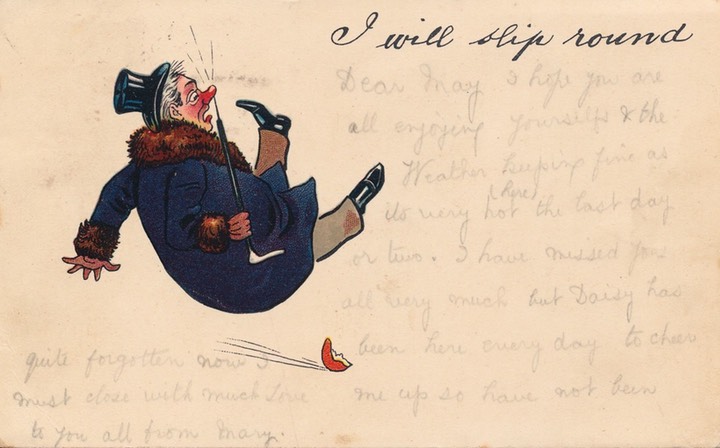 I will slip round
Dear May I hope you are
all enjoying yourselfs & the
Weather keeping fine as
its very hot (here) the last day
or two. I have missed you
all very much but Daisy has
been here every day to cheer
me up so have not been
quite forgotten now I
must close with much Love
to you all from Mary.